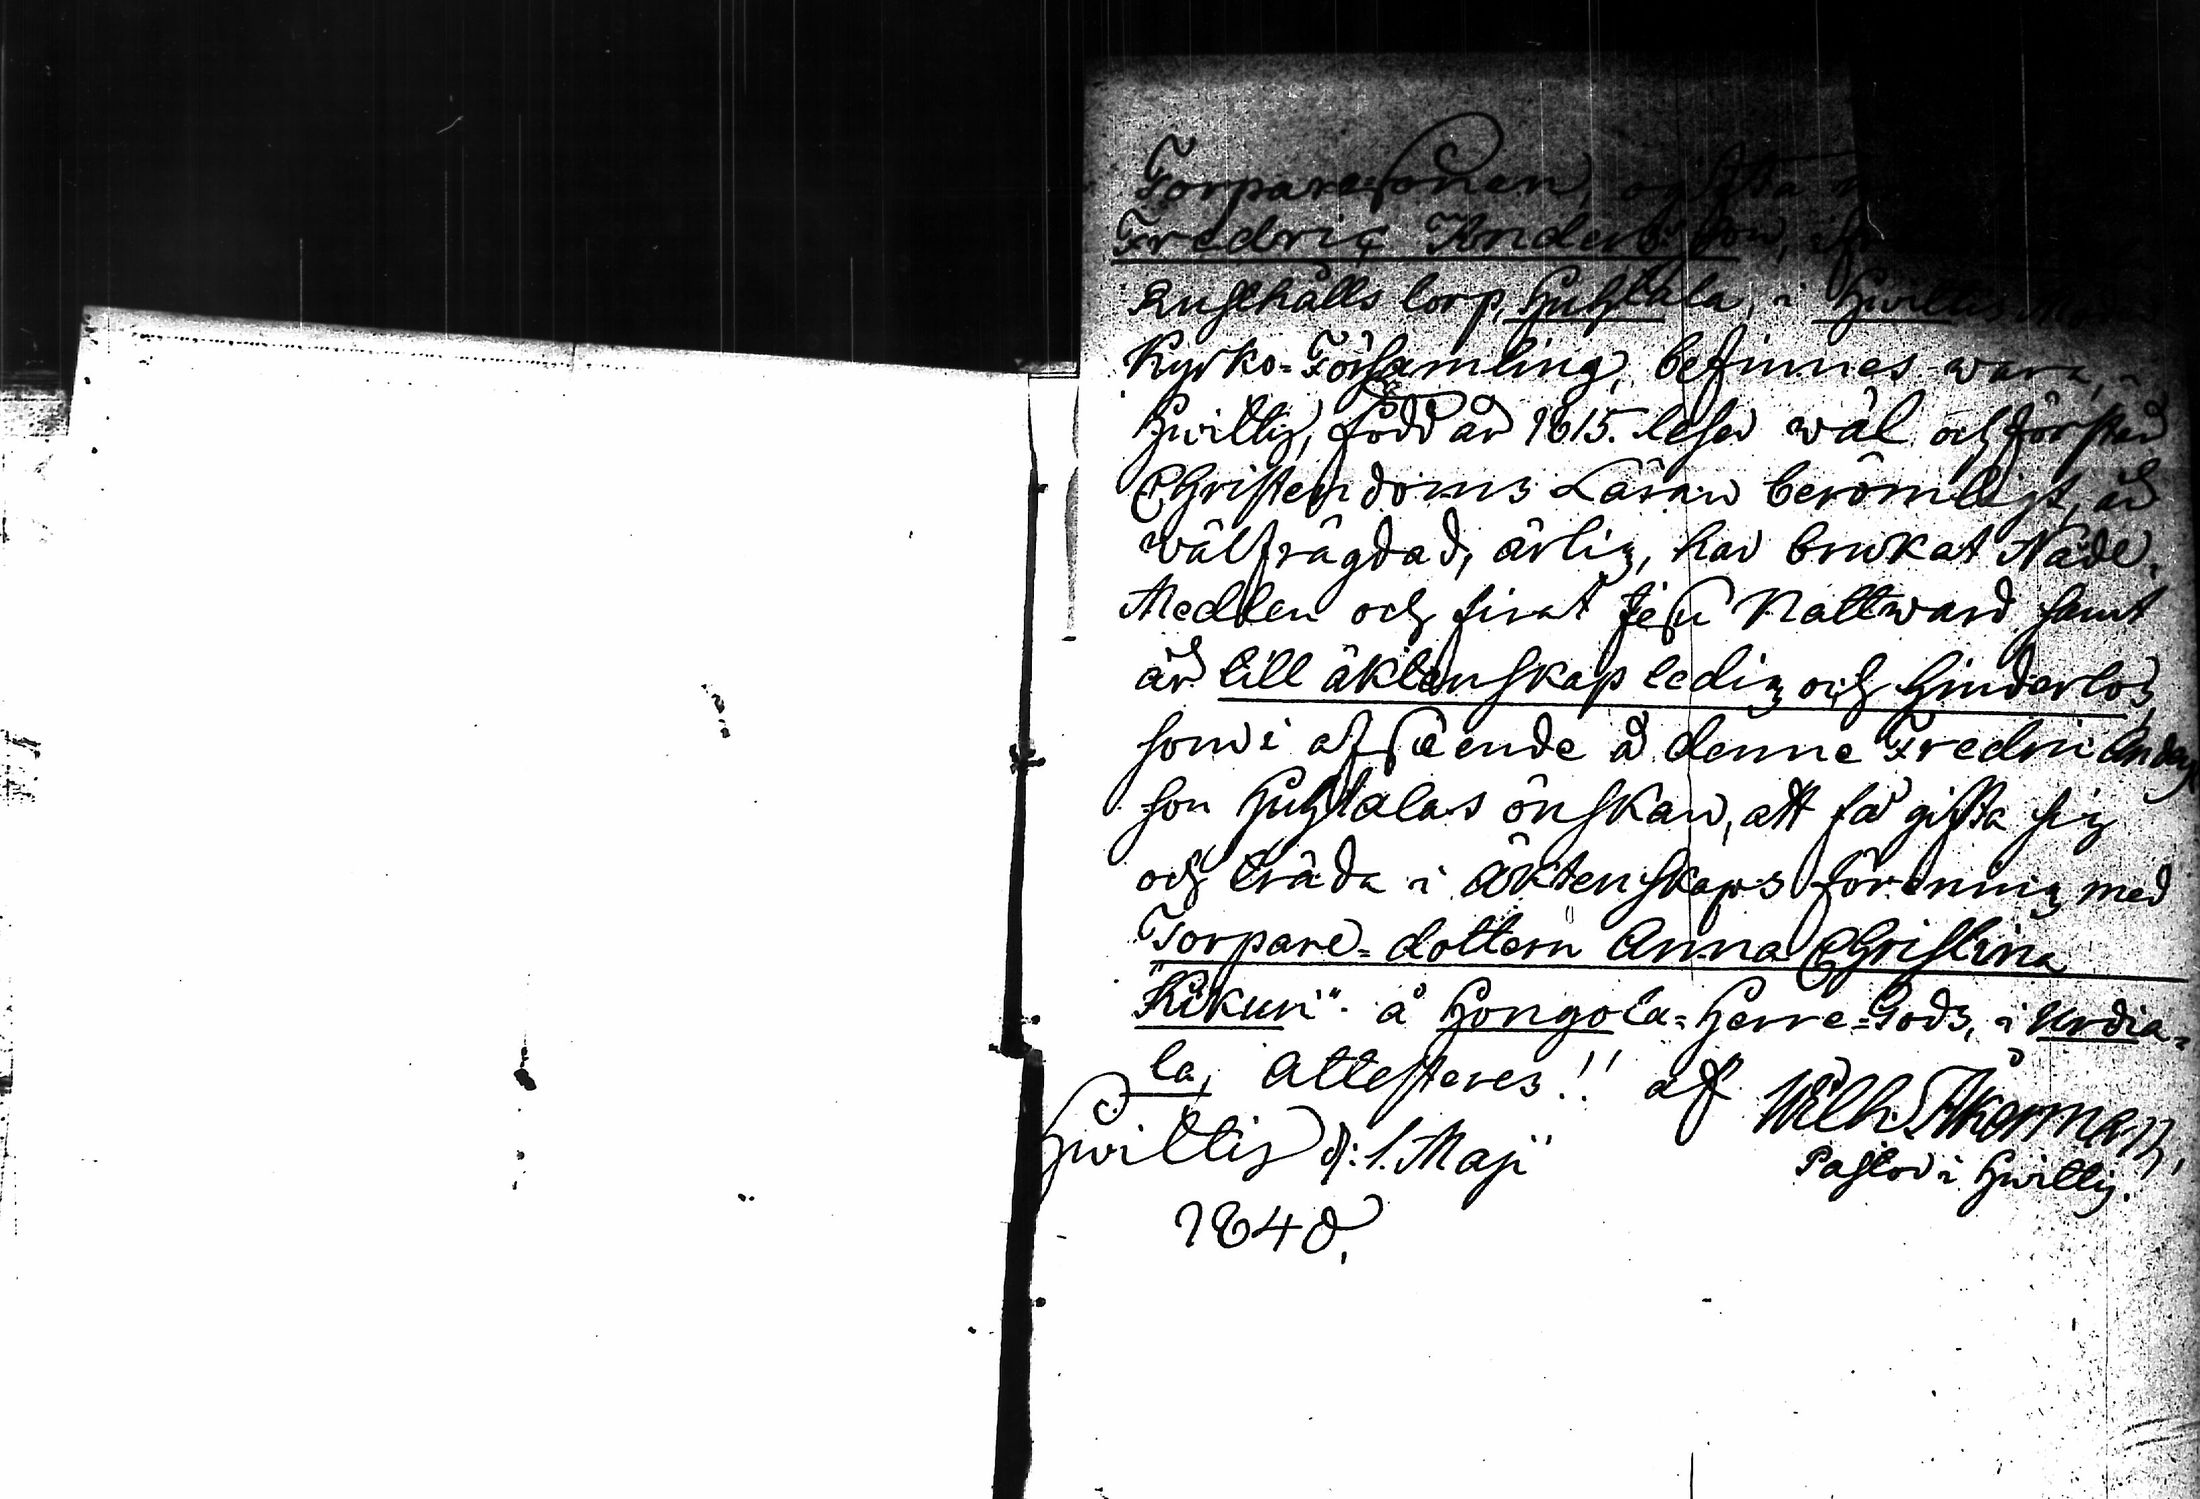 Torpare-Sonen, ogifta
Fredric Anders Son, ifr
Rusthålls torp, Huhtala, i Hwittis Mo
Kyrko-Församling, befinnes wara, i
Hwittis, född år 1815. läser wäl och förstår
Christendoms Läran berömligt, är
wälfrägdad, ärlig, har brukat Nåde-
Medlen och firat Jesu Nattward samt
är till äktenskap ledig och hinderlös,
som i afseende å denne Fredric Anders
son Huhtalas önskan, att få gifta sig
och träda i äktenskaps förening med
Torpare-dottern Anna Christina
"Kikuri" å Hongola-Herre-Gods, i Urdia-
la, attesteras!! af Wilh. Åkerman,
Hwittis d: 1. Maji Pastor i Hwittis.
1840.